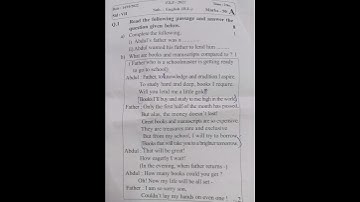 Std : VII
Q.1 Read the following passage and answer the
question given below.
a) Complete the following.
i) Abdul's father was a
ii) Abdul wanted his father to lend him
b) Who are books and manuscripts compared to ? 1
( Father who is a schoolmaster is getting ready
to go to school)
Abdul : Father, to knowledge and erudition I aspire
To study hard and deep, books I require.
Will you lend me a little gold?
Books I'll buy and study to rise high in the world.
Father : Only the first half of the month has passed
But alas, the money doesn't last!
Great books and manuscripts are so expensive
They are treasures rare and exclusive
But from my school, I will try to borrow,
Books that will take you to a brighter tomorrow.
Abdul : That will be great!
How eagerly I wait!
(In the evening, when father returns -)
Abdul : How many books could you get ?
Oh! Now my life will be all set -
Father : I am so sorry son,
Couldn't lay my hands on even one !
2